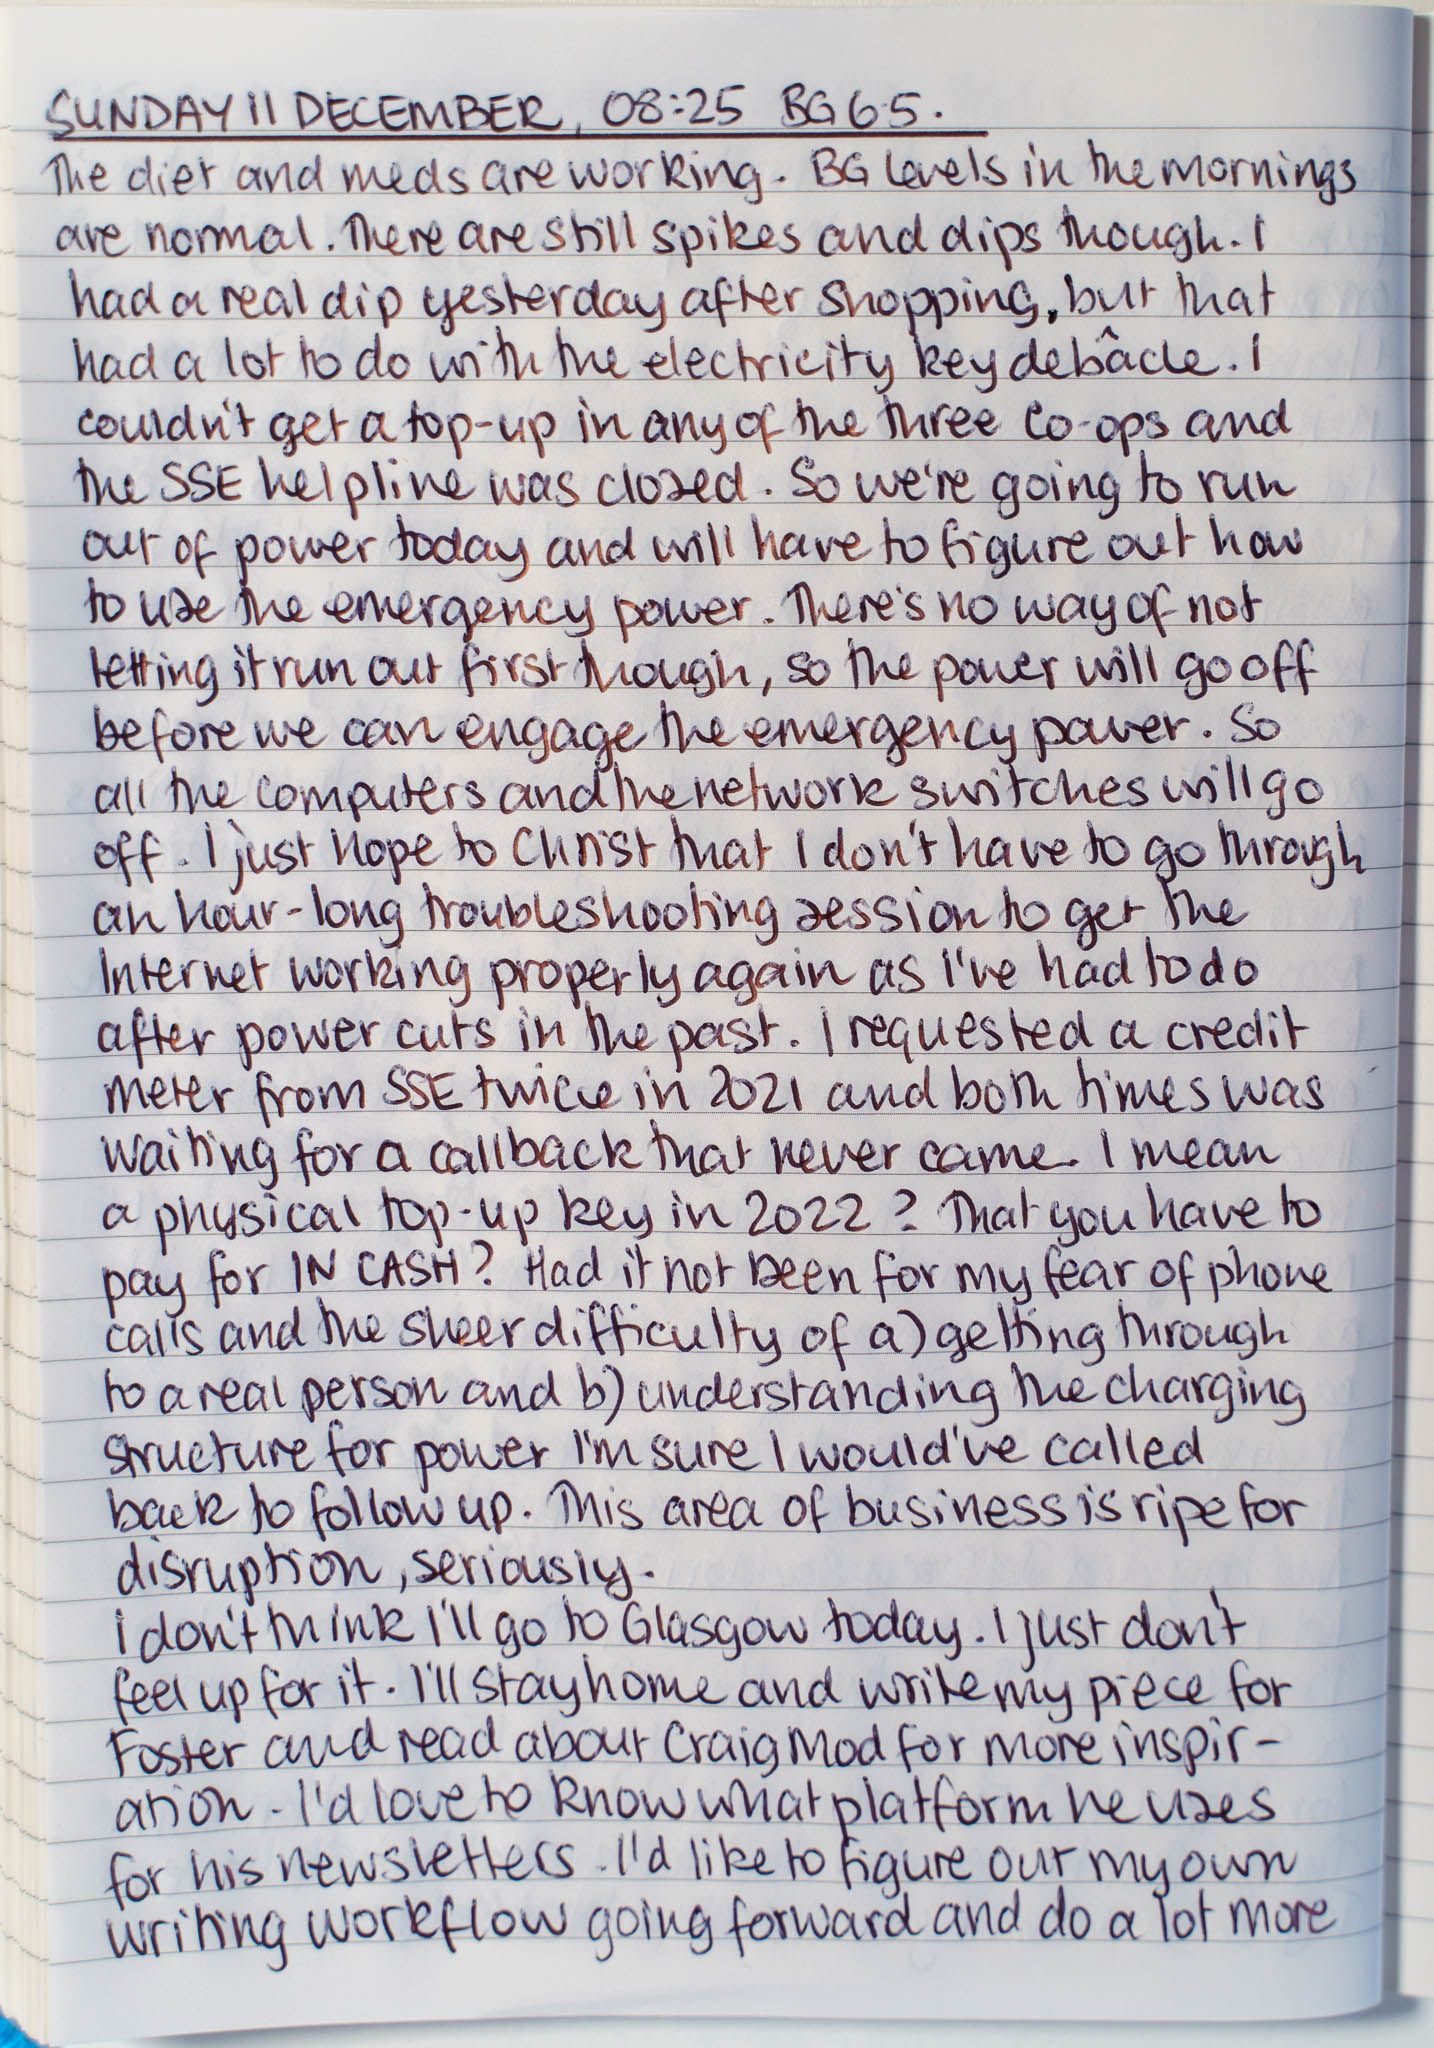 SUNDAY 11 DECEMBER, 08:25 BG 6.5.
The diet and meds are working. BG levels in the mornings
are normal. There are still spikes and dips though. I
had a real dip yesterday after shopping, but that
had a lot to do with the electricity key debâcle. I
couldn't get a top-up in any of the three Co-ops and
the SSE helpline was closed. So we're going to run
out of power today and will have to figure out how
to use the emergency power. There's no way of not
letting it run out first though, so the power will go off
before we can engage the emergency power. So
all the computers and the network switches will go
off. I just hope to Christ that I don't have to go through
an hour-long troubleshooting session to get the
Internet working properly again as I've had to do
after power cuts in the past. I requested a credit
meter from SSE twice in 2021 and both times was
waiting for a callback that never came. I mean
a physical top-up key in 2022? That you have to
pay for IN CASH? Had it not been for my fear of phone
calls and the sheer difficulty of a) getting through
to a real person and b) understanding the charging
structure for power I'm sure I would've called
back to follow up. This area of business is ripe for
disruption, seriously.
I don't think I'll go to Glasgow today. I just don't
feel up for it. I'll stay home and write my piece for
Foster and read about Craig Mod for more inspir-
ation. I'd love to know what platform he uses
for his newsletters. I'd like to figure out my own
writing workflow going forward and do a lot more